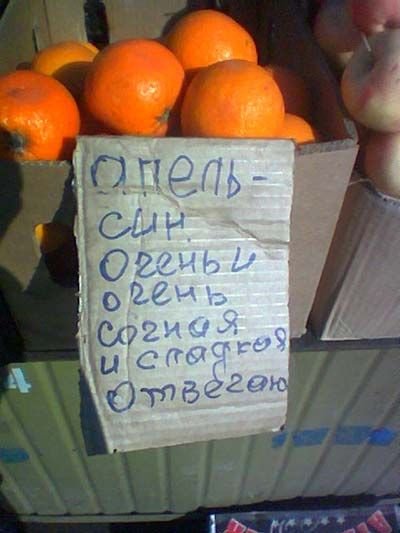 опель-
син
очень и
очень
сочная
и сладкая
Отвегаю